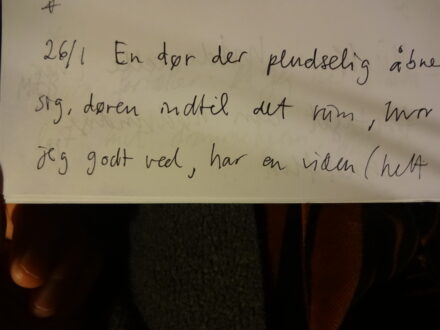 26/1 En dør der pludselig åbne
sig, døren indtil det rum, hvor
jeg godt ved, har en viden (helt